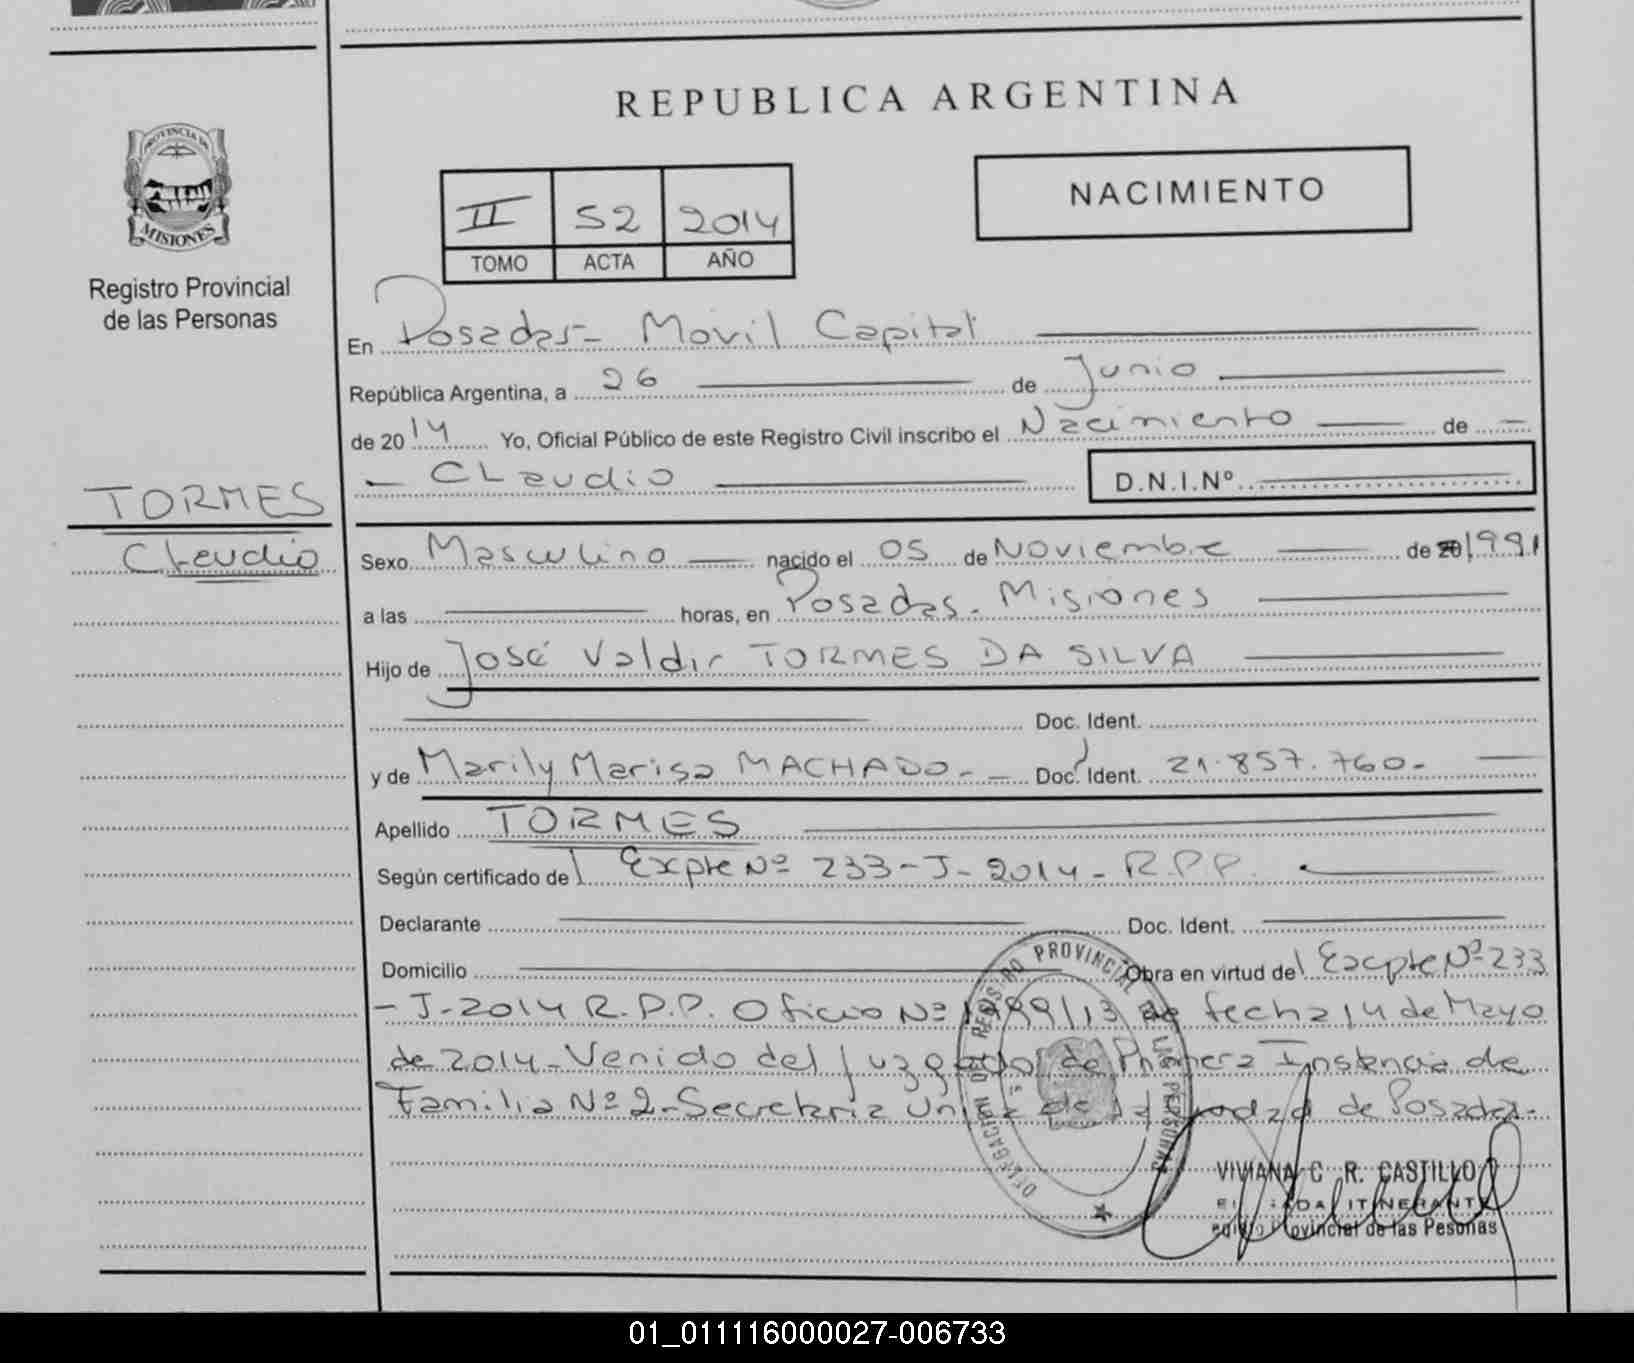 REPUBLICA ARGENTINA
PROVINCIA DE
MISIONES
Registro Provincial
de las Personas
II 52 2014
TOMO ACTA AÑO
NACIMIENTO
En Posadas- Móvil Capital
República Argentina, a 26 de Junio
de 2014 Yo, Oficial Público de este Registro Civil inscribo el Nacimiento de -
- Claudio D.N.I.Nº
TORMES
Claudio
Sexo Masculino nacido el 05 de Noviembre de 20 1991
a las horas, en Posadas - Misiones
Hijo de José Valdir TORMES DA SILVA
Doc. Ident.
y de Marily Marisa MACHADO - - Doc. Ident. 21.857.760.-
Apellido TORMES
Según certificado de Expte Nº 233-J-2014-R.P.P.
Declarante Doc. Ident.
Domicilio Obra en virtud de Expte Nº 233
- J-2014 R.P.P. Oficio Nº de fecha 14 de Mayo
de 2014-Venido del Juzgado de Primera Instancia de
Familia Nº 2-Secretaria Unica de de Posadas.
DELEGACION DEL REGISTRO PROVINCIAL DE LAS PERSONAS
VIVIANA C. R. CASTILLO
ITINERANTE
Provincial de las Pesonas
01_011116000027-006733